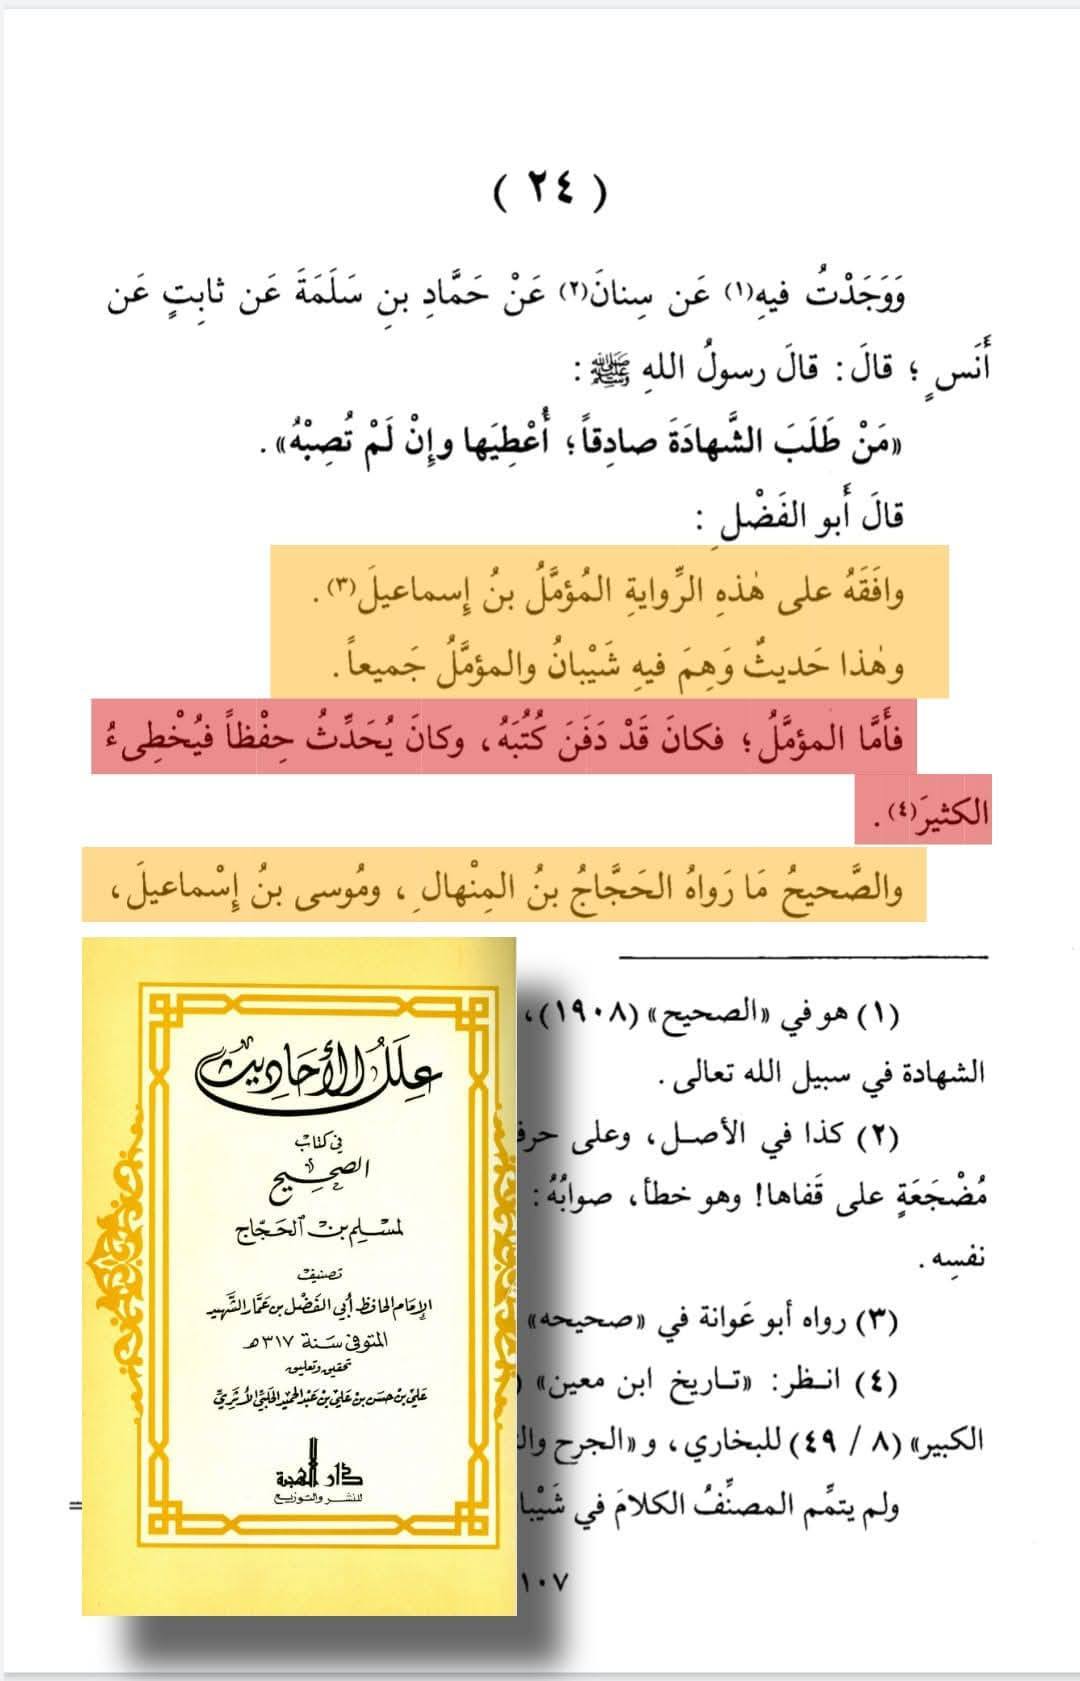 ( ٢٤ )
وَوَجَدْتُ فيهِ(١) عَن سِنانَ(٢) عَنْ حَمَّادِ بنِ سَلَمَةَ عَن ثابِتٍ عَن
أَنَسٍ ؛ قالَ : قالَ رسولُ اللهِ ﷺ :
«مَنْ طَلَبَ الشَّهادَةَ صادِقاً ؛ أُعْطِيَها وإِنْ لَمْ تُصِبْهُ» .
قالَ أَبو الفَضْلِ :
وافَقَهُ على هٰذهِ الرِّوايةِ المُؤمَّلُ بنُ إِسماعيلَ(٣) .
وهٰذا حَديثٌ وَهِمَ فيهِ شَيْبانُ والمؤمَّلُ جَميعاً .
فأَمَّا المؤمَّلُ ؛ فكانَ قَدْ دَفَنَ كُتُبَهُ ، وكانَ يُحَدِّثُ حِفْظاً فيُخْطِىءُ
الكثيرَ(٤) .
والصَّحيحُ مَا رَواهُ الحَجَّاجُ بنُ المِنْهالِ ، ومُوسى بنُ إِسْماعيلَ ،
(١) هو في «الصحيح» (١٩٠٨) ،
الشهادة في سبيل الله تعالى .
(٢) كذا في الأصل ، وعلى حرف
مُضْجَعَةٍ على قَفاها ! وهو خطأ ، صوابُهُ :
نفسِه .
(٣) رواه أبو عَوانة في «صحيحه»
(٤) انظر : «تاريخ ابن معين» (
الكبير» (٨ / ٤٩) للبخاري ، و «الجرح وال
ولم يتمِّم المصنِّفُ الكلامَ في شَيْبا
=
١٠٧
عِلَلُ الأَحَادِيث
في كتاب
الصحيح
لمسلم بن الحجّاج
تصنيف
الإمام الحافظ أبي الفضل بن عمّار الشهيد
المتوفى سنة ٣١٧ هـ
تحقيق وتعليق
علي بن حسن بن علي بن عبد الحميد الحلبي الأثري
دار الهجرة
للنشر والتوزيع